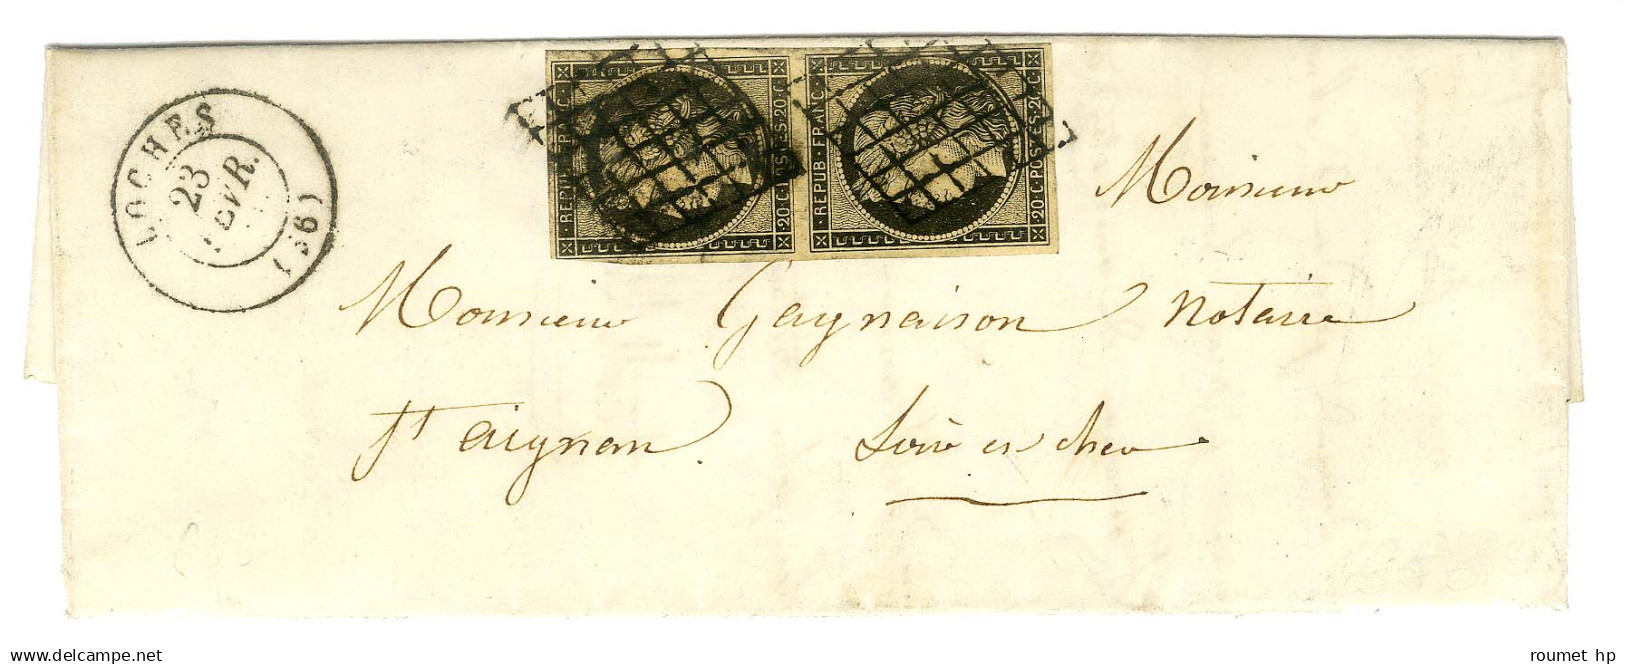 LOCHES
23
FEVR.
(36)
REPUB. FRANC.
20 C. POSTES. 20 C.
REPUB. FRANC.
20 C. POSTES. 20 C.
Monsieur
Monsieur Gaynaison notaire
St aignan. Loir et cher
delcampe.net
roumet hp